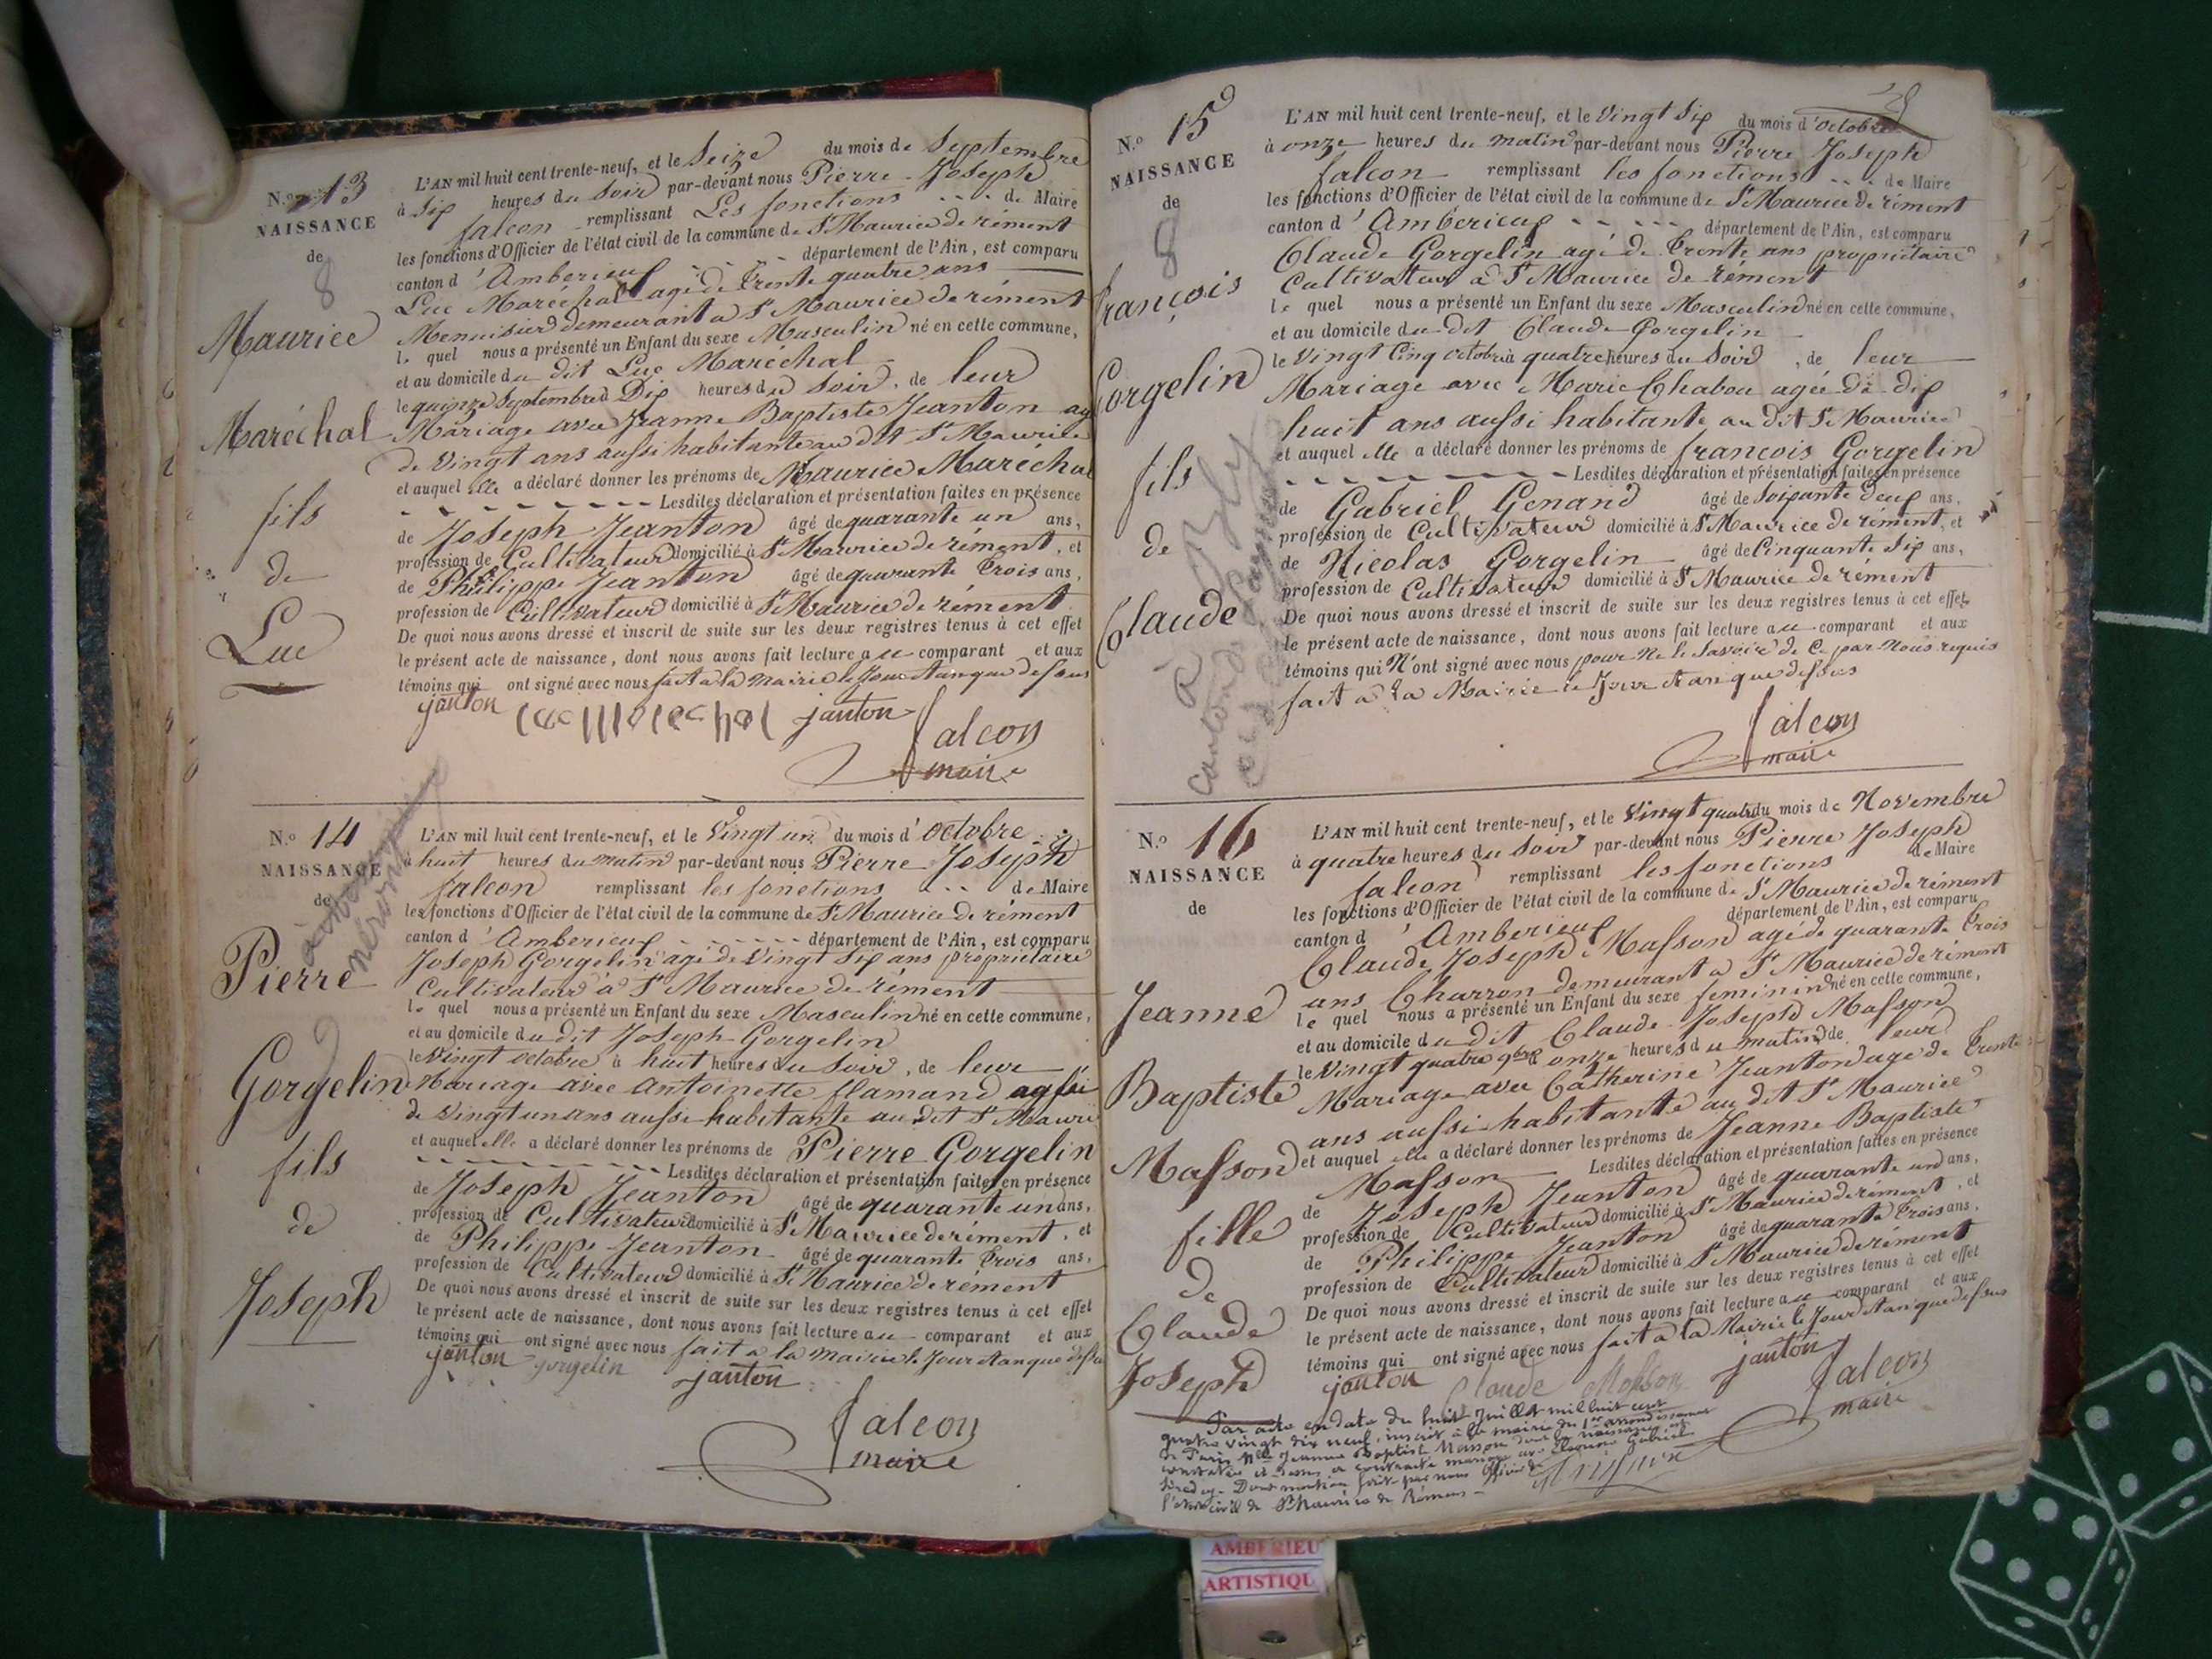 N.o 13
NAISSANCE
de
8
Maurice
Maréchal
fils
de
Luc
L'AN mil huit cent trente-neuf, et le Seize du mois de Septembre
à Six heures du Soir par-devant nous Pierre-Joseph
falcon remplissant Les fonctions de Maire
les fonctions d'Officier de l'état civil de la commune de St Maurice de rément
canton d'Amberieux département de l'Ain, est comparu
Luc Maréchal agé de trente quatre ans
Menuisier demeurant a St Maurice de rément
le quel nous a présenté un Enfant du sexe Masculin né en cette commune,
et au domicile du dit Luc Marechal
le quinze Septembre à Dix heures du Soir, de leur
Mariage avec Jeanne Baptiste Jeanton ag
de Vingt ans aussi habitante au dit St Maurice
et auquel elle a déclaré donner les prénoms de Maurice Maréchal
Lesdites déclaration et présentation faites en présence
de Joseph Jeanton âgé de quarante un ans,
profession de Cultivateur domicilié à St Maurice de rément, et
de Philippe Jeanton âgé de quarante trois ans,
profession de Cultivateur domicilié à St Maurice de rément
De quoi nous avons dressé et inscrit de suite sur les deux registres tenus à cet effet
le présent acte de naissance, dont nous avons fait lecture au comparant et aux
témoins qui ont signé avec nous fait a la Mairie le Jour et an que dessus
janton luc Marechal janton
falcon
maire
N.o 14
NAISSANCE
de
Pierre
Gorgelin
fils
de
Joseph
L'AN mil huit cent trente-neuf, et le Vingt un du mois d'octobre
à huit heures du matin par-devant nous Pierre Joseph
falcon remplissant les fonctions de Maire
les fonctions d'Officier de l'état civil de la commune de St Maurice de rément
canton d'Amberieux département de l'Ain, est comparu
Joseph Gorgelin agé de Vingt Six ans propriétaire
Cultivateur à St Maurice de rément
le quel nous a présenté un Enfant du sexe Masculin né en cette commune,
et au domicile du dit Joseph Gorgelin
le Vingt octobre à huit heures du Soir, de leur
Mariage avec antoinette flamand
de Vingt un ans aussi habitante au dit St Mauri
et auquel elle a déclaré donner les prénoms de Pierre Gorgelin
Lesdites déclaration et présentation faites en présence
de Joseph Jeanton âgé de quarante un ans,
profession de Cultivateur domicilié à St Maurice de rément, et
de Philippe Jeanton âgé de quarante trois ans,
profession de Cultivateur domicilié à St Maurice de rément
De quoi nous avons dressé et inscrit de suite sur les deux registres tenus à cet effet
le présent acte de naissance, dont nous avons fait lecture au comparant et aux
témoins qui ont signé avec nous fait a la mairie le Jour et an que dessu
janton gorgelin janton
falcon
maire
N.o 15
NAISSANCE
de
8
françois
Gorgelin
fils
de
Claude
L'AN mil huit cent trente-neuf, et le Vingt Six du mois d'octobre
à onze heures du matin par-devant nous Pierre Joseph
falcon remplissant les fonctions de Maire
les fonctions d'Officier de l'état civil de la commune de St Maurice de rément
canton d'Amberieux département de l'Ain, est comparu
Claude Gorgelin agé de trente ans propriétaire
Cultivateur à St Maurice de rément
le quel nous a présenté un Enfant du sexe Masculin né en cette commune,
et au domicile du dit Claude Gorgelin
le Vingt Cinq octobre à quatre heures du Soir, de leur
Mariage avec Marie Chabou agée de dix
huit ans aussi habitante au dit St Maurice
et auquel elle a déclaré donner les prénoms de françois Gorgelin
Lesdites déclaration et présentation faites en présence
de Gabriel Genand âgé de Soixante deux ans,
profession de Cultivateur domicilié à St Maurice de rément, et
de Nicolas Gorgelin âgé de Cinquante Six ans,
profession de Cultivateur domicilié à St Maurice de rément
De quoi nous avons dressé et inscrit de suite sur les deux registres tenus à cet effet
le présent acte de naissance, dont nous avons fait lecture au comparant et aux
témoins qui N'ont signé avec nous pour Ne le Savoir de Ce par Nous requis
fait a la Mairie le Jour et an que dessus
falcon
maire
N.o 16
NAISSANCE
de
Jeanne
Baptiste
Masson
fille
de
Claude
Joseph
L'AN mil huit cent trente-neuf, et le Vingt quatre du mois de Novembre
à quatre heures du Soir par-devant nous Pierre Joseph
falcon remplissant les fonctions de Maire
les fonctions d'Officier de l'état civil de la commune de St Maurice de rément
canton d'Amberieux département de l'Ain, est comparu
Claude Joseph Masson agé de quarante trois
ans Charron demeurant a St Maurice de rément
le quel nous a présenté un Enfant du sexe feminin né en cette commune,
et au domicile du dit Claude-Joseph Masson
le Vingt quatre 9bre à onze heures du matin de leur
Mariage avec Catherine Jeanton agé de trente
ans aussi habitante au dit St Maurice
et auquel elle a déclaré donner les prénoms de Jeanne Baptiste
Masson Lesdites déclaration et présentation faites en présence
de Joseph Jeanton âgé de quarante un ans,
profession de Cultivateur domicilié à St Maurice de rément, et
de Philippe Jeanton âgé de quarante trois ans,
profession de Cultivateur domicilié à St Maurice de rément
De quoi nous avons dressé et inscrit de suite sur les deux registres tenus à cet effet
le présent acte de naissance, dont nous avons fait lecture au comparant et aux
témoins qui ont signé avec nous fait a la Mairie le Jour et an que dessus
janton Claude Masson janton
falcon
maire
Par acte en date du huit Juillet mil huit cent
quatre vingt dix neuf, inscrit à la mairie du 1er arrondissement
de Paris Mlle Jeanne Baptiste Masson dont la naissance est
constatée ci-dessus a contracté mariage avec Gabriel
Dont mention faite par nous officier de
l'état civil de St Maurice de Rémens
AMBERIEU
ARTISTIQU